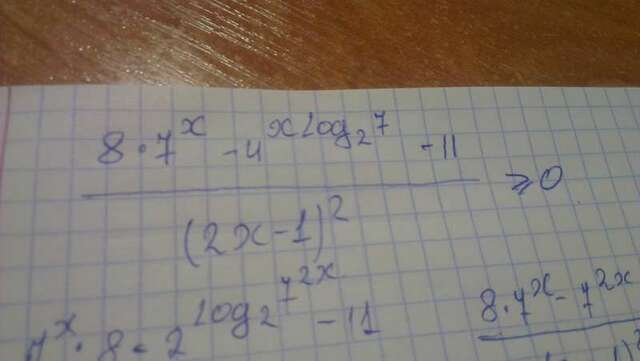 8·7^x - 4^(x log_2 7) - 11
(2x-1)^2
≥0
7^x · 8 - 2^(log_2 7^(2x)) - 11
8·7^x - 7^(2x)